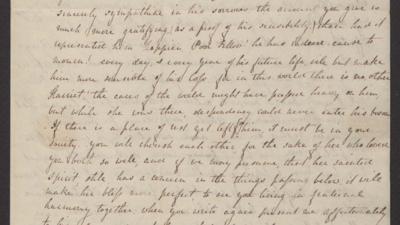 sincerely sympathize in his sorrows the account you give is
much more gratifying as a proof of his sensibility, than had it
represented him happier. Poor Fellow! he has indeed cause to
mourn! every day, & every year of his future life, will but make
him more sensible of his loss for in this world there is no other
Harriet! the cares of the world might have pressed heavy on him
but while she was there, despondency could never enter his bosom
If there is a place of rest yet left him, it must be in your
Society. you will cherish each other for the sake of her who loved
you both so well, and if we may presume, that her sainted
spirit still has a concern in the things passing below, it will
make her bliss more perfect, to see you living in fraternal
harmony together, when you write again present me affectionately
to